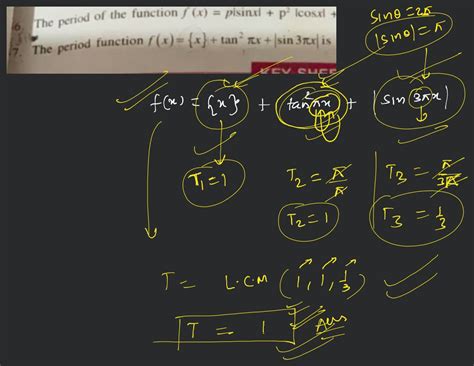 6. The period of the function f (x) = p|sinx| + p² |cosx| +
7. The period function f (x) = {x} + tan² πx + |sin 3πx| is
KEY SHEE
sinθ = 2π
|sinθ| = π
f(x) = {x} + tan²πx + |sin 3πx|
T₁ = 1
T₂ = π/π
T₃ = π/3π
T₂ = 1
T₃ = 1/3
T = L.C.M (1, 1, 1/3)
T = 1 Ans